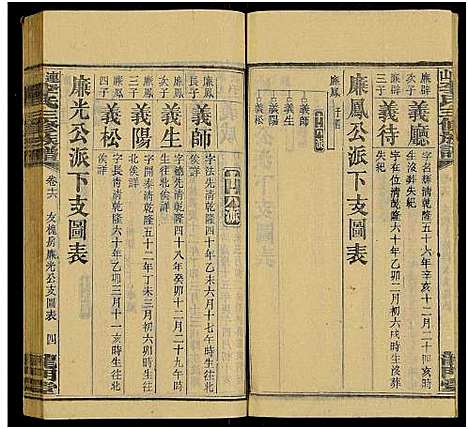 廉辟三子
義廳
字名輝清乾隆五十六年辛亥十二月二十四日
生沒葬失紀
廉辟
義待
字官位清乾隆六十年乙卯三月初六亥時生沒葬
失紀
廉鳳公派下支圖表
廉鳳
義師
義生
義陽
義松
廉鳳長子
義師
字法先清乾隆四十年乙未六月十七午時生往北
俟詳
廉鳳二子
義生
字德先清乾隆四十八年癸卯十二月二十九午時
生往北俟詳
廉鳳三子
義陽
字開泰清乾隆五十二年丁未三月初六卯時生往
北俟詳
義松
字長清乾隆六十年乙卯二月十一亥時生往北
俟詳
廉光公派下支圖表
卷十六
友槐房廉光公支圖表
四